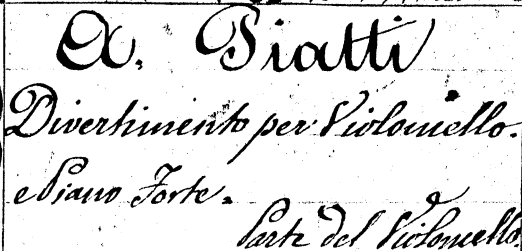 A. Piatti
Divertimento per Violoncello.
e Piano Forte.
Parte del Violoncello